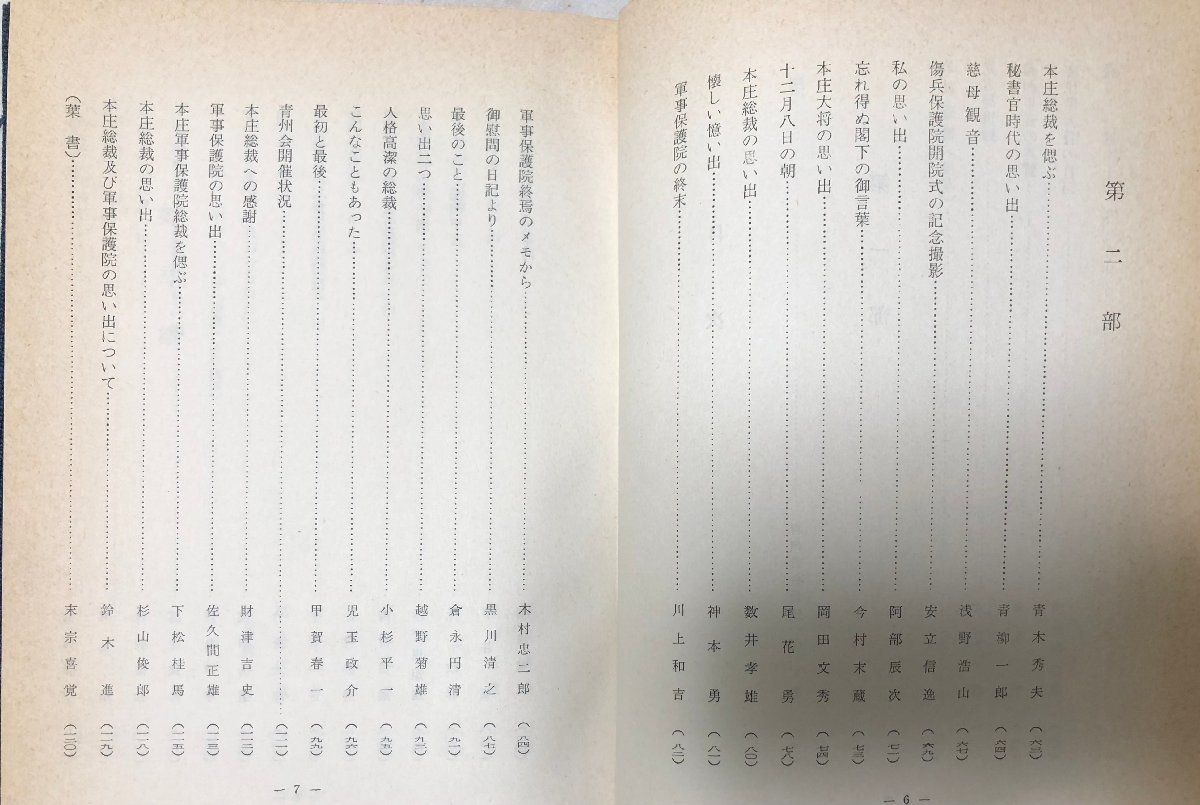 第二部
本庄総裁を偲ぶ……青木秀夫（六三）
秘書官時代の思い出……青柳一郎（六四）
慈母観音……浅野浩山（六七）
傷兵保護院開院式の記念撮影……安立信逸（六九）
私の思い出……阿部辰次（七一）
忘れ得ぬ閣下の御言葉……今村末蔵（七三）
本庄大将の思い出……岡田文秀（七四）
十二月八日の朝……尾花勇（七八）
本庄総裁の思い出……数井孝雄（八〇）
懐しい憶い出……神本勇（八一）
軍事保護院の終末……川上和吉（八二）
— 6 —
軍事保護院終焉のメモから……木村忠二郎（八四）
御慰問の日記より……黒川清之（八七）
最後のこと……倉永円清（九一）
思い出二つ……越野菊雄
人格高潔の総裁……小杉平一（九五）
こんなこともあった……児玉政介（九六）
最初と最後……甲賀春一（九九）
青州会開催状況……
本庄総裁への感謝……財津吉史
軍事保護院の思い出……佐久間正雄（一一三）
本庄軍事保護院総裁を偲ぶ……下松桂馬（一一五）
本庄総裁の思い出……杉山俊郎（一一八）
本庄総裁及び軍事保護院の思い出について……鈴木進（一一九）
（葉書）……末宗喜覚（一二〇）
— 7 —